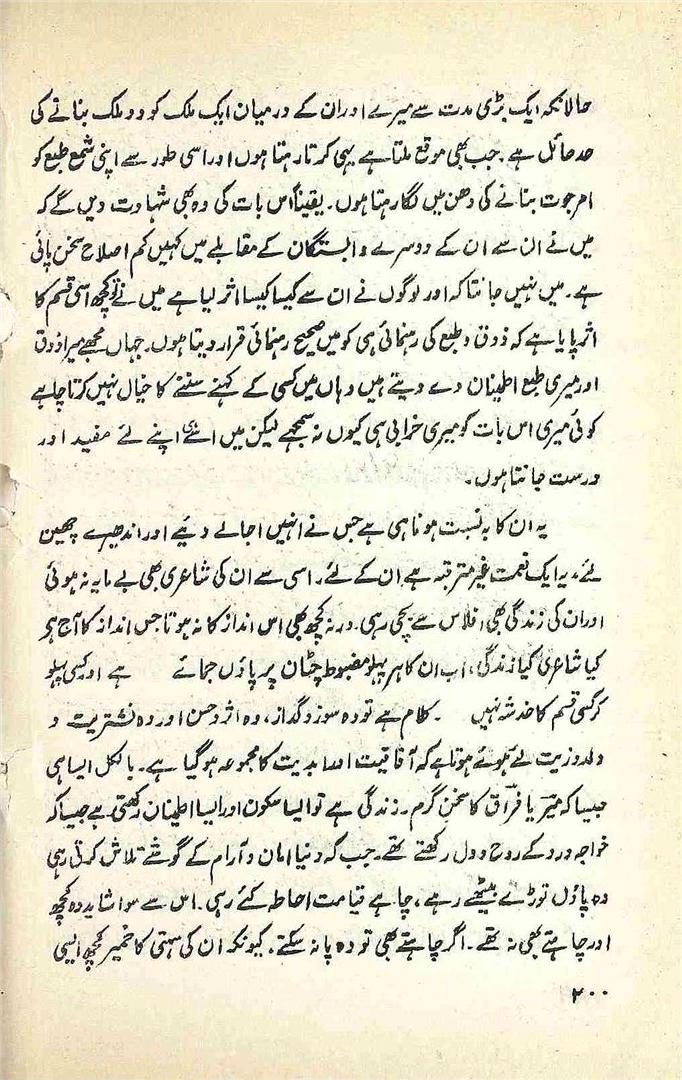 حالانکہ ایک بڑی مدت سے میرے اور ان کے درمیان ایک ملک کو دو ملک بنانے کی
حد حائل ہے۔ جب بھی موقع ملتا ہے یہی کرتا رہتا ہوں اور اسی طور سے اپنی شمع طبع کو
امر جوت بنانے کی دھن میں لگا رہتا ہوں۔ یقیناً اس بات کی وہ بھی شہادت دیں گے کہ
میں نے ان سے ان کے دوسرے وابستگان کے مقابلے میں کہیں کم اصلاح سخن پائی
ہے۔ میں نہیں جانتا کہ اور لوگوں نے ان سے کیسا کیسا اثر لیا ہے میں نے تو کچھ اسی قسم کا
اثر پایا ہے کہ ذوق و طبع کی رہنمائی ہی کو میں صحیح رہنمائی قرار دیتا ہوں۔ جہاں مجھے میرا ذوق
اور میری طبع اطمینان دے دیتے ہیں وہاں میں کسی کے کہنے سننے کا خیال نہیں کرتا چاہے
کوئی میری اس بات کو میری خرابی ہی کیوں نہ سمجھے لیکن میں اسے ہی اپنے لئے مفید اور
درست جانتا ہوں۔
یہ ان کا بہ نسبت ہونا ہی ہے جس نے انہیں اجالے دیئے اور اندھیرے چھین
لئے، یہ ایک نعمت غیر مترقبہ ہے ان کے لئے۔ اسی سے ان کی شاعری بھی بے مایہ نہ ہوئی
اور ان کی زندگی بھی افلاس سے بچی رہی۔ ورنہ کچھ بھی اس انداز کا نہ ہوتا جس انداز کا آج ہے
کیا شاعری کیا زندگی، اب ان کا ہر پہلو مضبوط چٹان پر پاؤں جمائے ہے اور کسی پہلو
کو کسی قسم کا خدشہ نہیں۔ کلام ہے تو وہ سوز و گداز، وہ اثر و حسن اور وہ نشتریت و
دلدوزیت لئے ہوئے ہوتا ہے کہ آفاقیت اور ابدیت کا مجموعہ ہو گیا ہے۔ بالکل ایسا ہی
جیسا کہ میرؔ یا فراقؔ کا سخن گرم۔ زندگی ہے تو ایسا سکون اور ایسا اطمینان رکھتی ہے جیسا کہ
خواجہ درد کے روح و دل رکھتے تھے۔ جب کہ دنیا امان و آرام کے گوشے تلاش کرتی رہی
وہ پاؤں توڑے بیٹھے رہے، چاہے قیامت احاطہ کئے رہی۔ اس سے سوا شاید وہ کچھ
اور چاہتے بھی نہ تھے۔ اگر چاہتے بھی تو وہ پا نہ سکتے۔ کیونکہ ان کی ہستی کا خمیر کچھ ایسی
۲۰۰